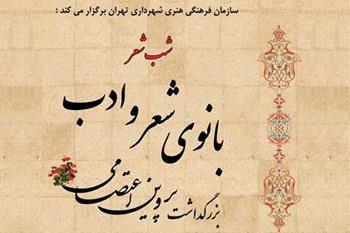 سازمان فرهنگی هنری شهرداری تهران برگزار می کند :
شب شعر
بانوی شعر و ادب
بزرگداشت پروین اعتصامی